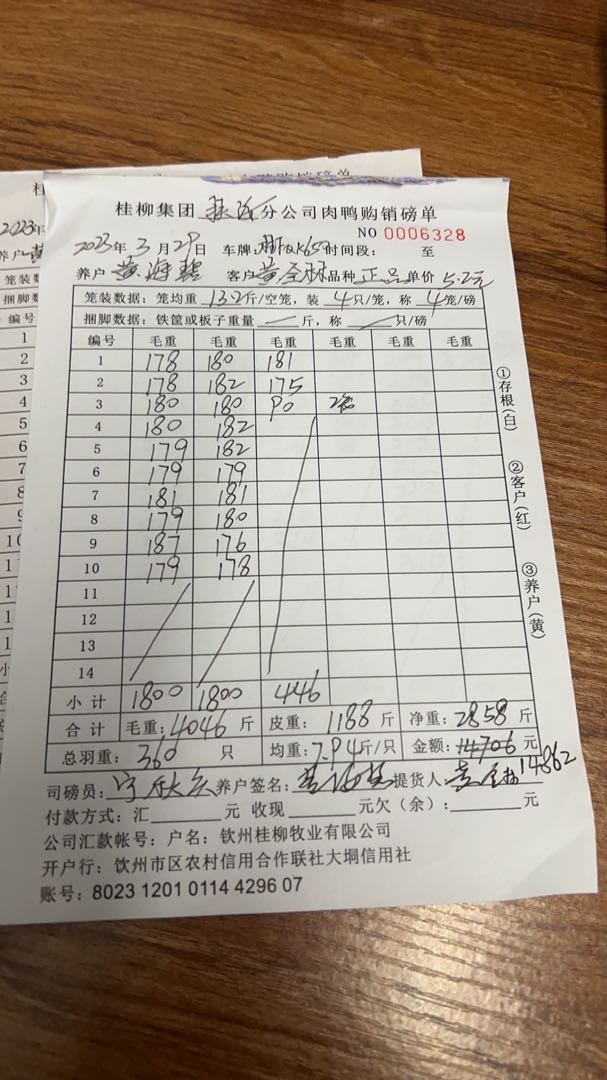 桂柳集团 分公司肉鸭购销磅单
NO 0006328
2023年 3月 29日 车牌: 时间段: 至
养户 黄海 客户 黄 品种 正品 单价 5.2元
笼装数据: 笼均重 13.2 斤/空笼, 装 4 只/笼, 称 4 笼/磅
捆脚数据: 铁筐或板子重量 斤, 称 只/磅
编号 毛重 毛重 毛重 毛重 毛重 毛重
1 178 180 181
2 178 182 175
3 180 180 90
4 180 182
5 179 182
6 179 179
7 181 181
8 179 180
9 187 176
10 179 178
11
12
13
14
小计 1800 1800 446
合计 毛重: 4046 斤 皮重: 1188 斤 净重: 2858 斤
总羽重: 360 只 均重: 7.94 斤/只 金额: 14706 元
14862
司磅员: 养户签名: 提货人:
付款方式: 汇 元 收现 元欠(余): 元
公司汇款帐号: 户名: 钦州桂柳牧业有限公司
开户行: 钦州市区农村信用合作联社大垌信用社
账号: 8023 1201 0114 4296 07
①存根(白)
②客户(红)
③养户(黄)
购销磅单
2023年
养户 黄
笼装数
捆脚数
编号
1
2
3
4
5
6
7
8